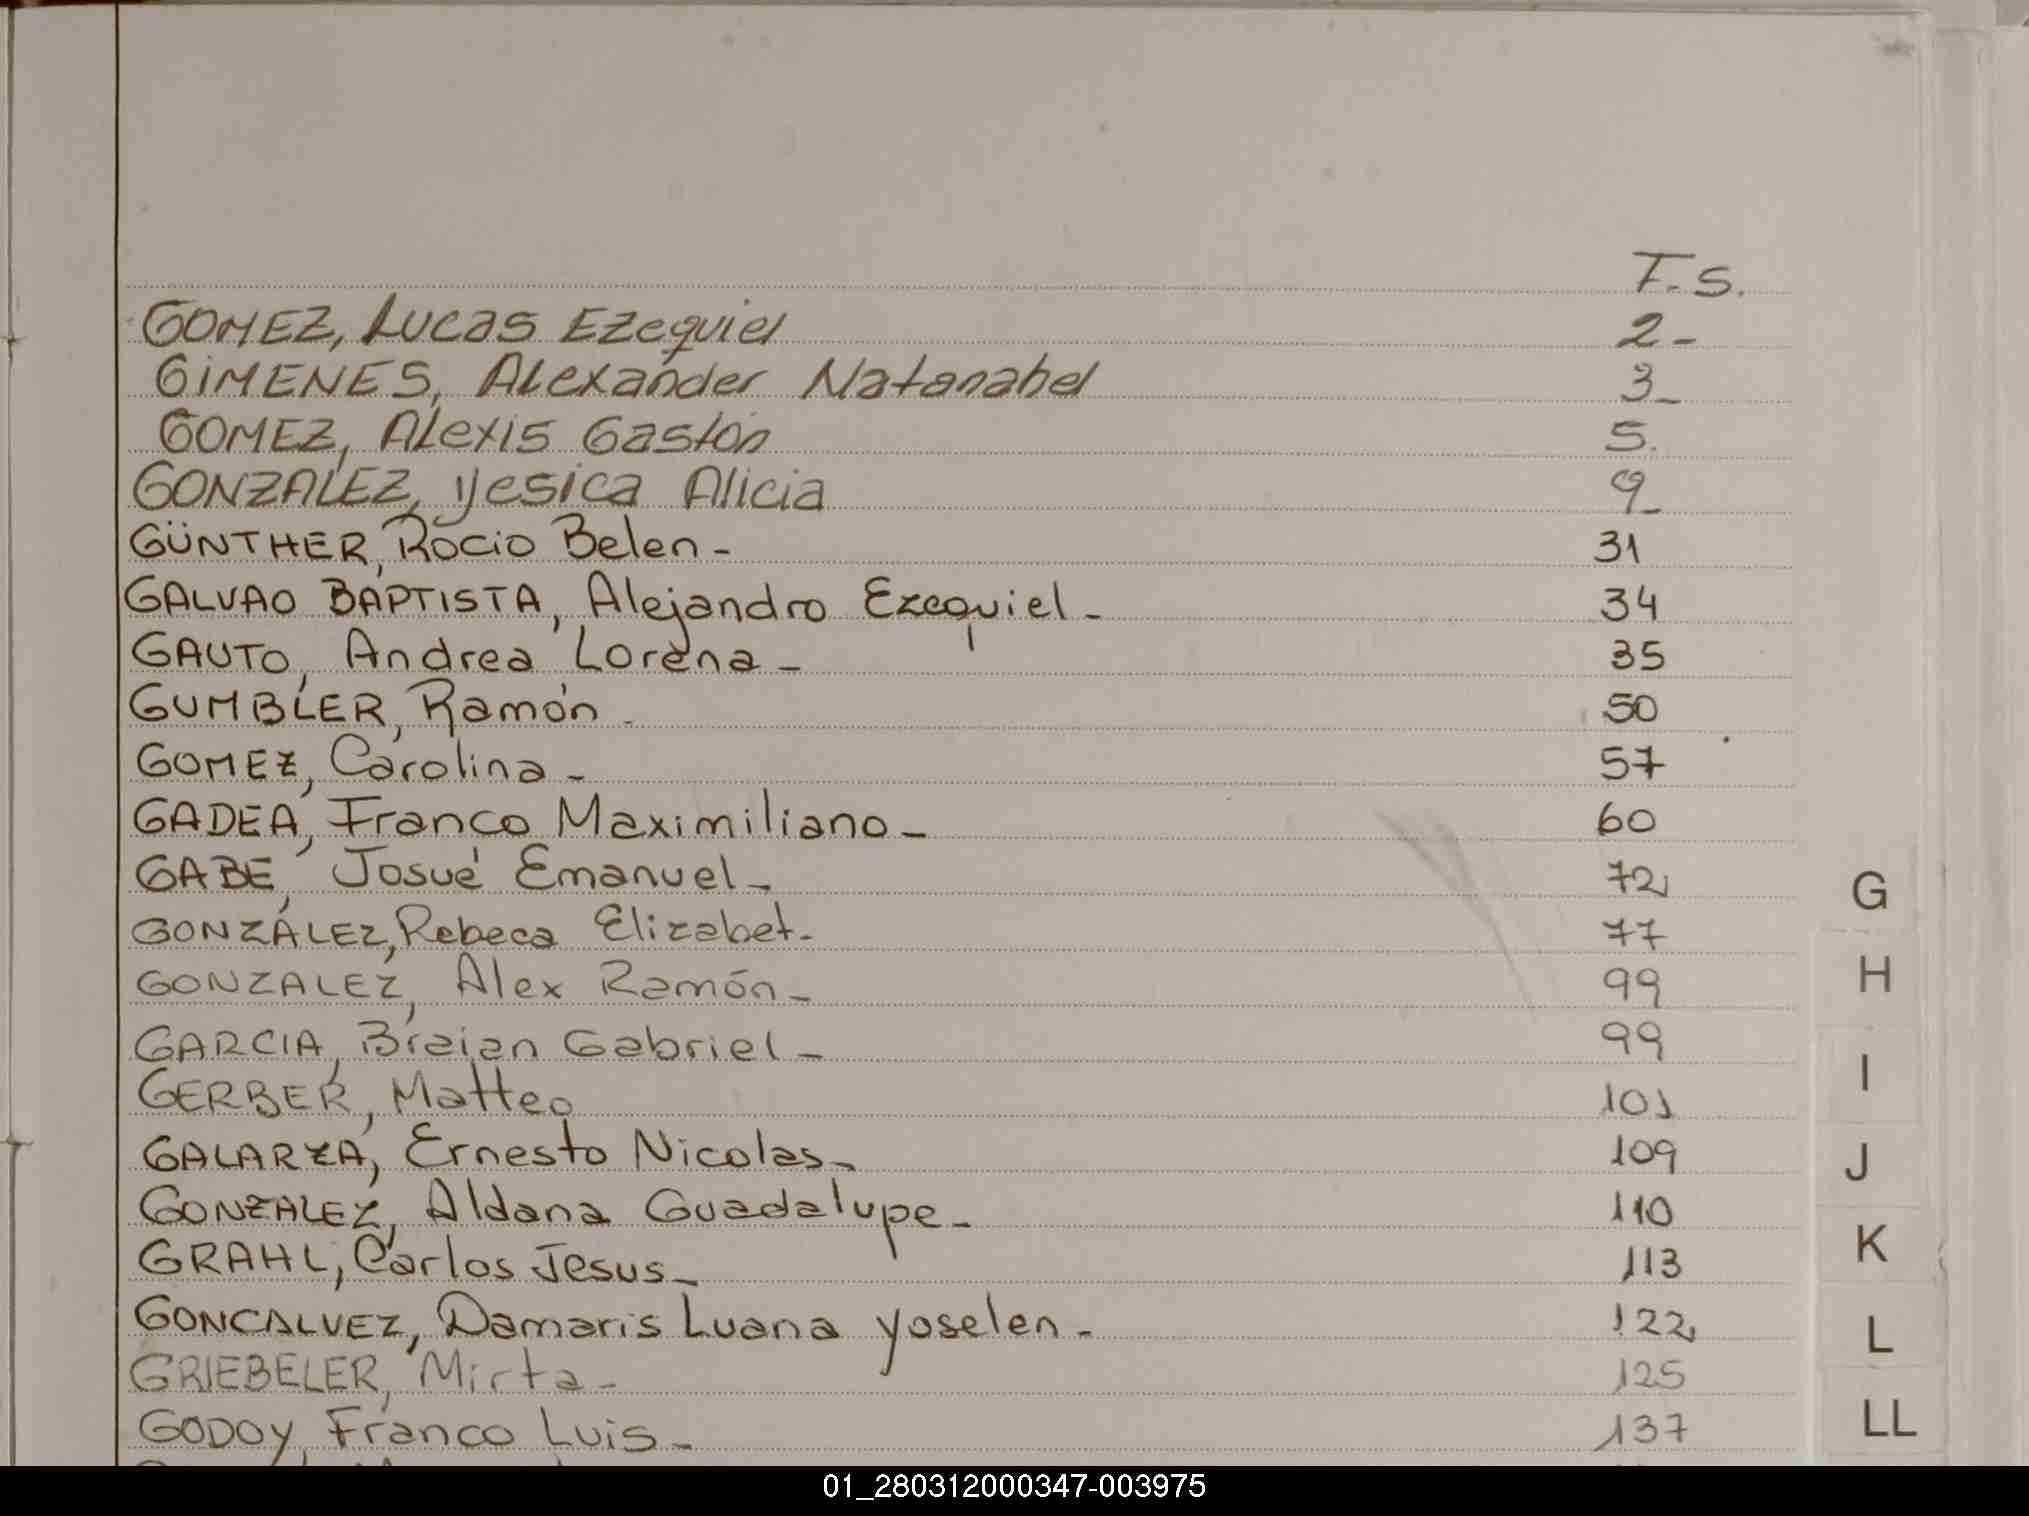 F.S.
GOMEZ, Lucas Ezequiel 2-
GIMENES, Alexander Natanahel 3-
GOMEZ, Alexis Gastón 5.
GONZALEZ, yesica Alicia 9-
GÜNTHER, Rocio Belen- 31
GALVAO BAPTISTA, Alejandro Ezequiel- 34
GAUTO, Andrea Lorena- 35
GUMBLER, Ramón- 50
GOMEZ, Carolina- 57
GADEA, Franco Maximiliano- 60
GABE, Josué Emanuel- 72
GONZÁLEZ, Rebeca Elizabet- 77
GONZALEZ, Alex Ramón- 99
GARCIA, Braian Gabriel- 99
GERBER, Matteo 101
GALARZA, Ernesto Nicolas- 109
GONZALEZ, Aldana Guadalupe- 110
GRAHL, Carlos Jesus- 113
GONCALVEZ, Damaris Luana yoselen- 122
GRIEBELER, Mirta- 125
GODOY, Franco Luis- 137
G
H
I
J
K
L
LL
01_280312000347-003975